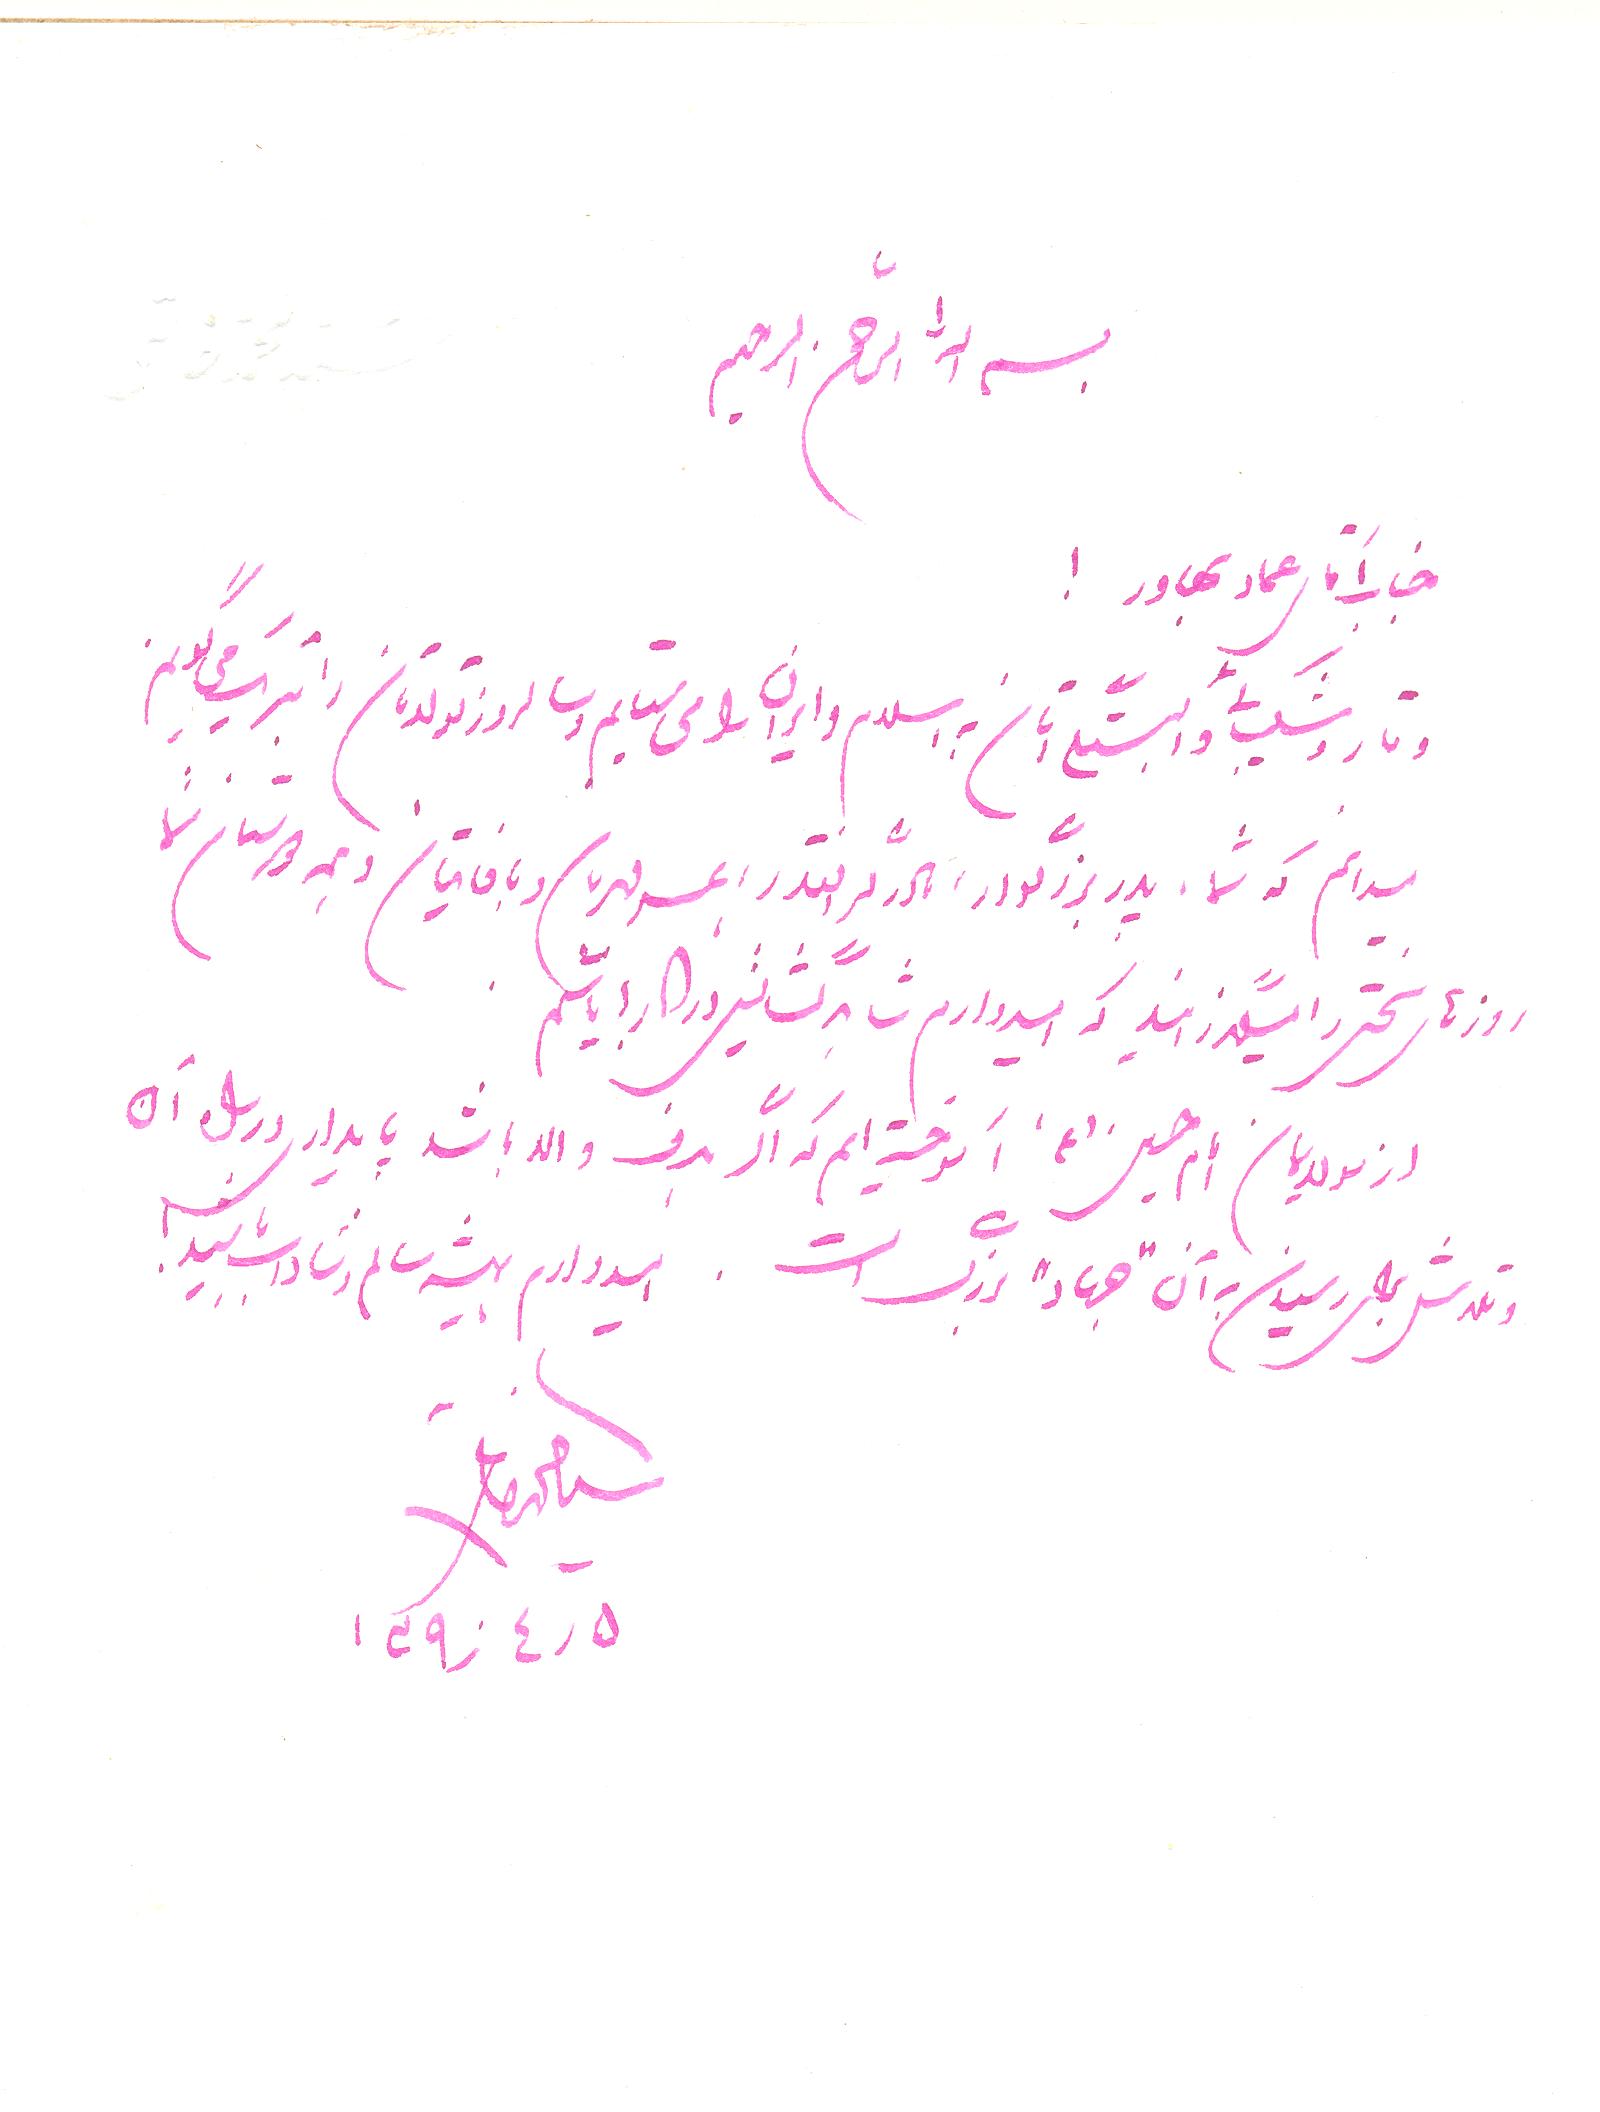 بسم الله الرحمن الرحیم
جناب آقای عماد بهاور !
وقار و شکیبائی و دلبستگی تان به اسلام و ایران را می ستایم و سالروز تولدتان را تبریک می گویم
میدانم که شما، پدر بزرگوار، مادر گرانقدر، همسر مهربان و باوفایتان و همه دوستان شما
روزهای سختی را میگذرانید که امیدوارم شاهد گشایشی در کارها باشیم .
از مولایمان امام حسین (ع) آموخته ایم که اگر هدف والا باشد پایداری در راه آن
و تلاش برای رسیدن به آن "جهاد" بزرگ است . امیدوارم همیشه سالم و شاد باشید!
۵ ر ٤ ر ۱۳۹